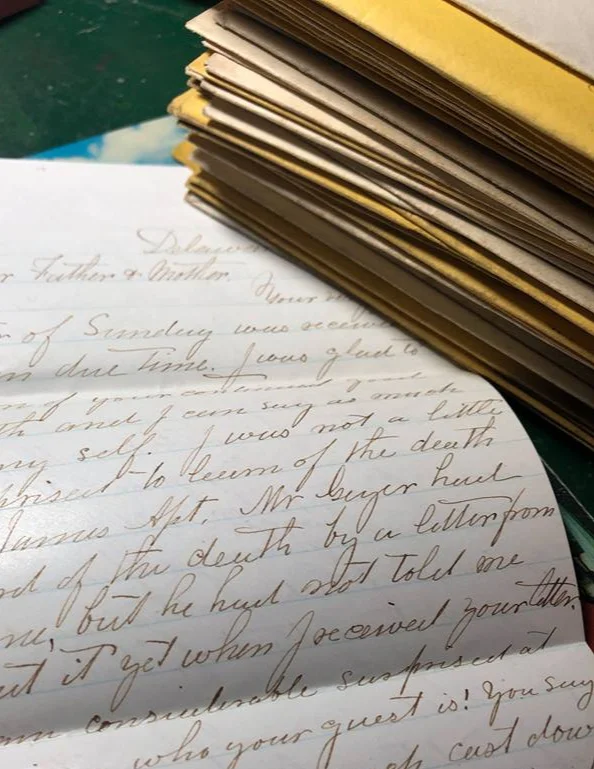 Delawar
r Father & Mother.
Your
of Sunday was receiv
n due time. I was glad to
of your continued good
th and I can say as much
my self. I was not a little
prised to learn of the death
James Apt. Mr Geyer had
rd of the death by a letter from
me, but he had not told me
ut it yet when I received your letter.
am considerable surprised at
who your guest is! You say
cast dow